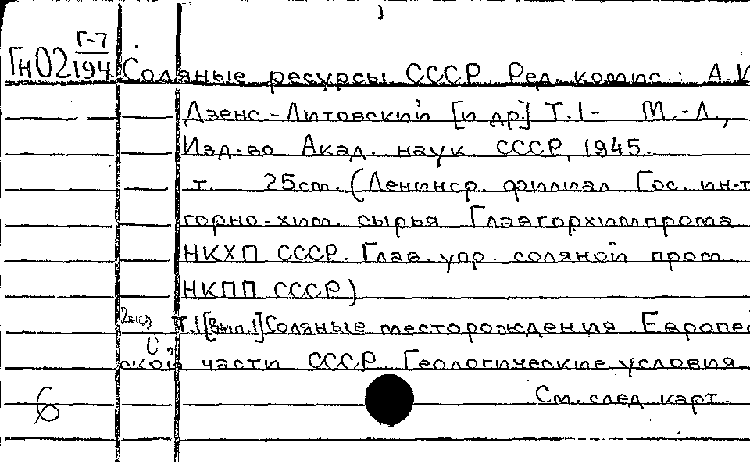 Г-7
Гн02 194 Соляные ресурсы СССР. Ред. комис.: А.И
Дзенс-Литовский [и др] Т.1- М.-Л.,
Изд-во Акад. наук СССР, 1945.
т. 25см. (Ленингр. филиал Гос. ин-т
горно-хим. сырья Главгорхимпрома
НКХП СССР. Глав. упр. соляной пром
НКПП СССР)
Т.1 [Вып.1] Соляные месторождения Европей
ской части СССР. Геологические условия
6 См. след карт